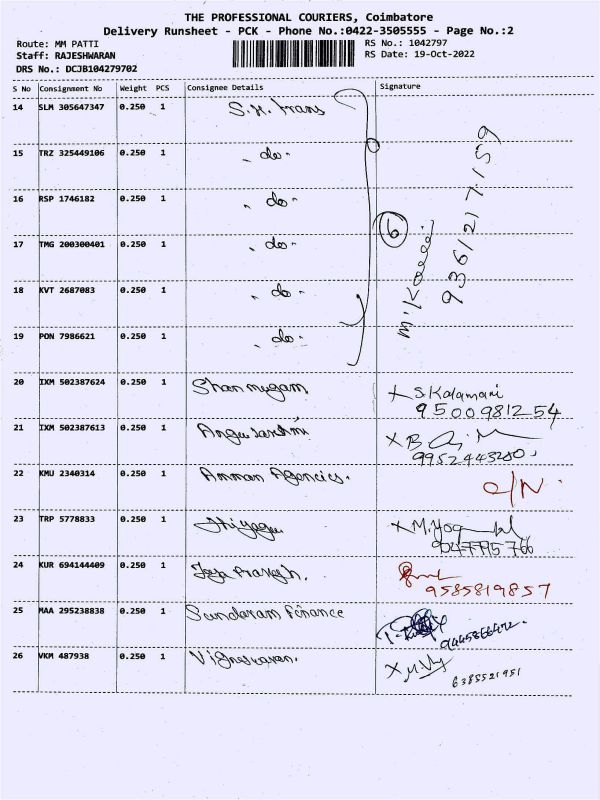 THE PROFESSIONAL COURIERS, Coimbatore
Delivery Runsheet - PCK - Phone No.:0422-3505555 - Page No.:2
Route: MM PATTI
RS No.: 1042797
Staff: RAJESHWARAN
RS Date: 19-Oct-2022
DRS No.: DCJB104279702
S No Consignment No Weight PCS Consignee Details Signature
14 SLM 305647347 0.250 1 S.K. trans
15 TRZ 325449106 0.250 1 " do "
16 RSP 1746182 0.250 1 " do "
17 TMG 200300401 0.250 1 " do "
18 KVT 2687083 0.250 1 " do "
19 PON 7986621 0.250 1 " do "
6
9361217159
20 IXM 502387624 0.250 1 Shanmugam X S.Kalamani
9500981254
21 IXM 502387613 0.250 1 X B
9952443280
22 KMU 2340314 0.250 1 Amman Agencies.
23 TRP 5778833 0.250 1 Thiyagu X M.
9047795766
24 KUR 694144409 0.250 1
9585819857
25 MAA 295238838 0.250 1 Sundaram Finance
26 VKM 487938 0.250 1 Vigneswaran. X
6385521951